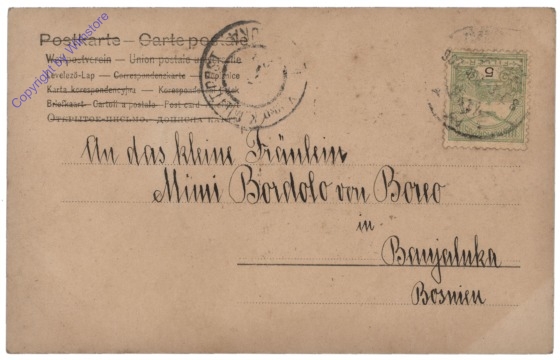 Postkarte — Carte postale
Weltpostverein — Union postale universelle
Levelező-Lap — Correspondenzkarte — Dopisnice
Karta korespondencyjna — Korespondenční lístek
Briefkaart — Cartolina postale — Post card
ОТКРЫТОЕ ПИСЬМО.
An das kleine Fräulein
Mimi Bordolo von Boreo
in
Banjaluka
Bosnien
5
Copyright by Winstore